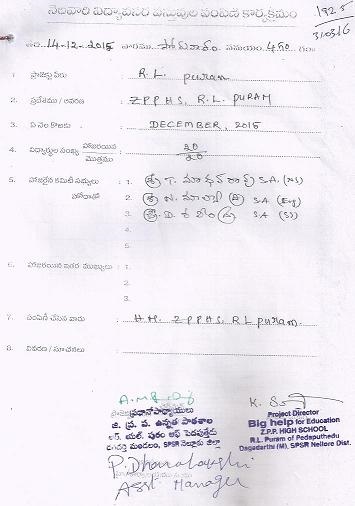 నెలవారీ విద్యావసర వస్తువుల పంపిణీ కార్యక్రమం
1925
310316
తేది 14-12-2015 వారము సోమవారం సమయం 4:00 గం॥
1 ప్రాజెక్టు పేరు : R.L. puram
2. ప్రదేశము / ఆవరణ : ZPPHS, R.L. PURAM
3. ఏ నెల కొరకు : DECEMBER, 2015
4. విద్యార్థుల సంఖ్య హాజరయిన మొత్తము : 20/20
5. హాజరైన కమిటీ సభ్యులు : 1. శ్రీ T. మాధవరావు S.A. (NS)
హోదాతో 2. శ్రీ N. S.A (Eng)
3. శ్రీ D. S.A (SS)
4.
5.
6. హాజరయిన ఇతర ముఖ్యులు : 1.
2.
3.
7. పంపిణీ చేసిన వారు : HM. ZPPHS, RL puram.
8. వివరణ / సూచనలు :
ప్రధానోపాధ్యాయులు
జి. ప్ర. ప. ఉన్నత పాఠశాల
ఆర్. యల్. పురం ఆఫ్ పెదపుత్తేడు
దగదర్తి మండలం, SPSR నెల్లూరు జిల్లా
Project Director
Big help for Education
Z.P.P. HIGH SCHOOL
R.L. Puram of Pedaputhedu
Dagadarthi (M), SPSR Nellore Dist.
P. Dhanalakshmi
Asst Manager